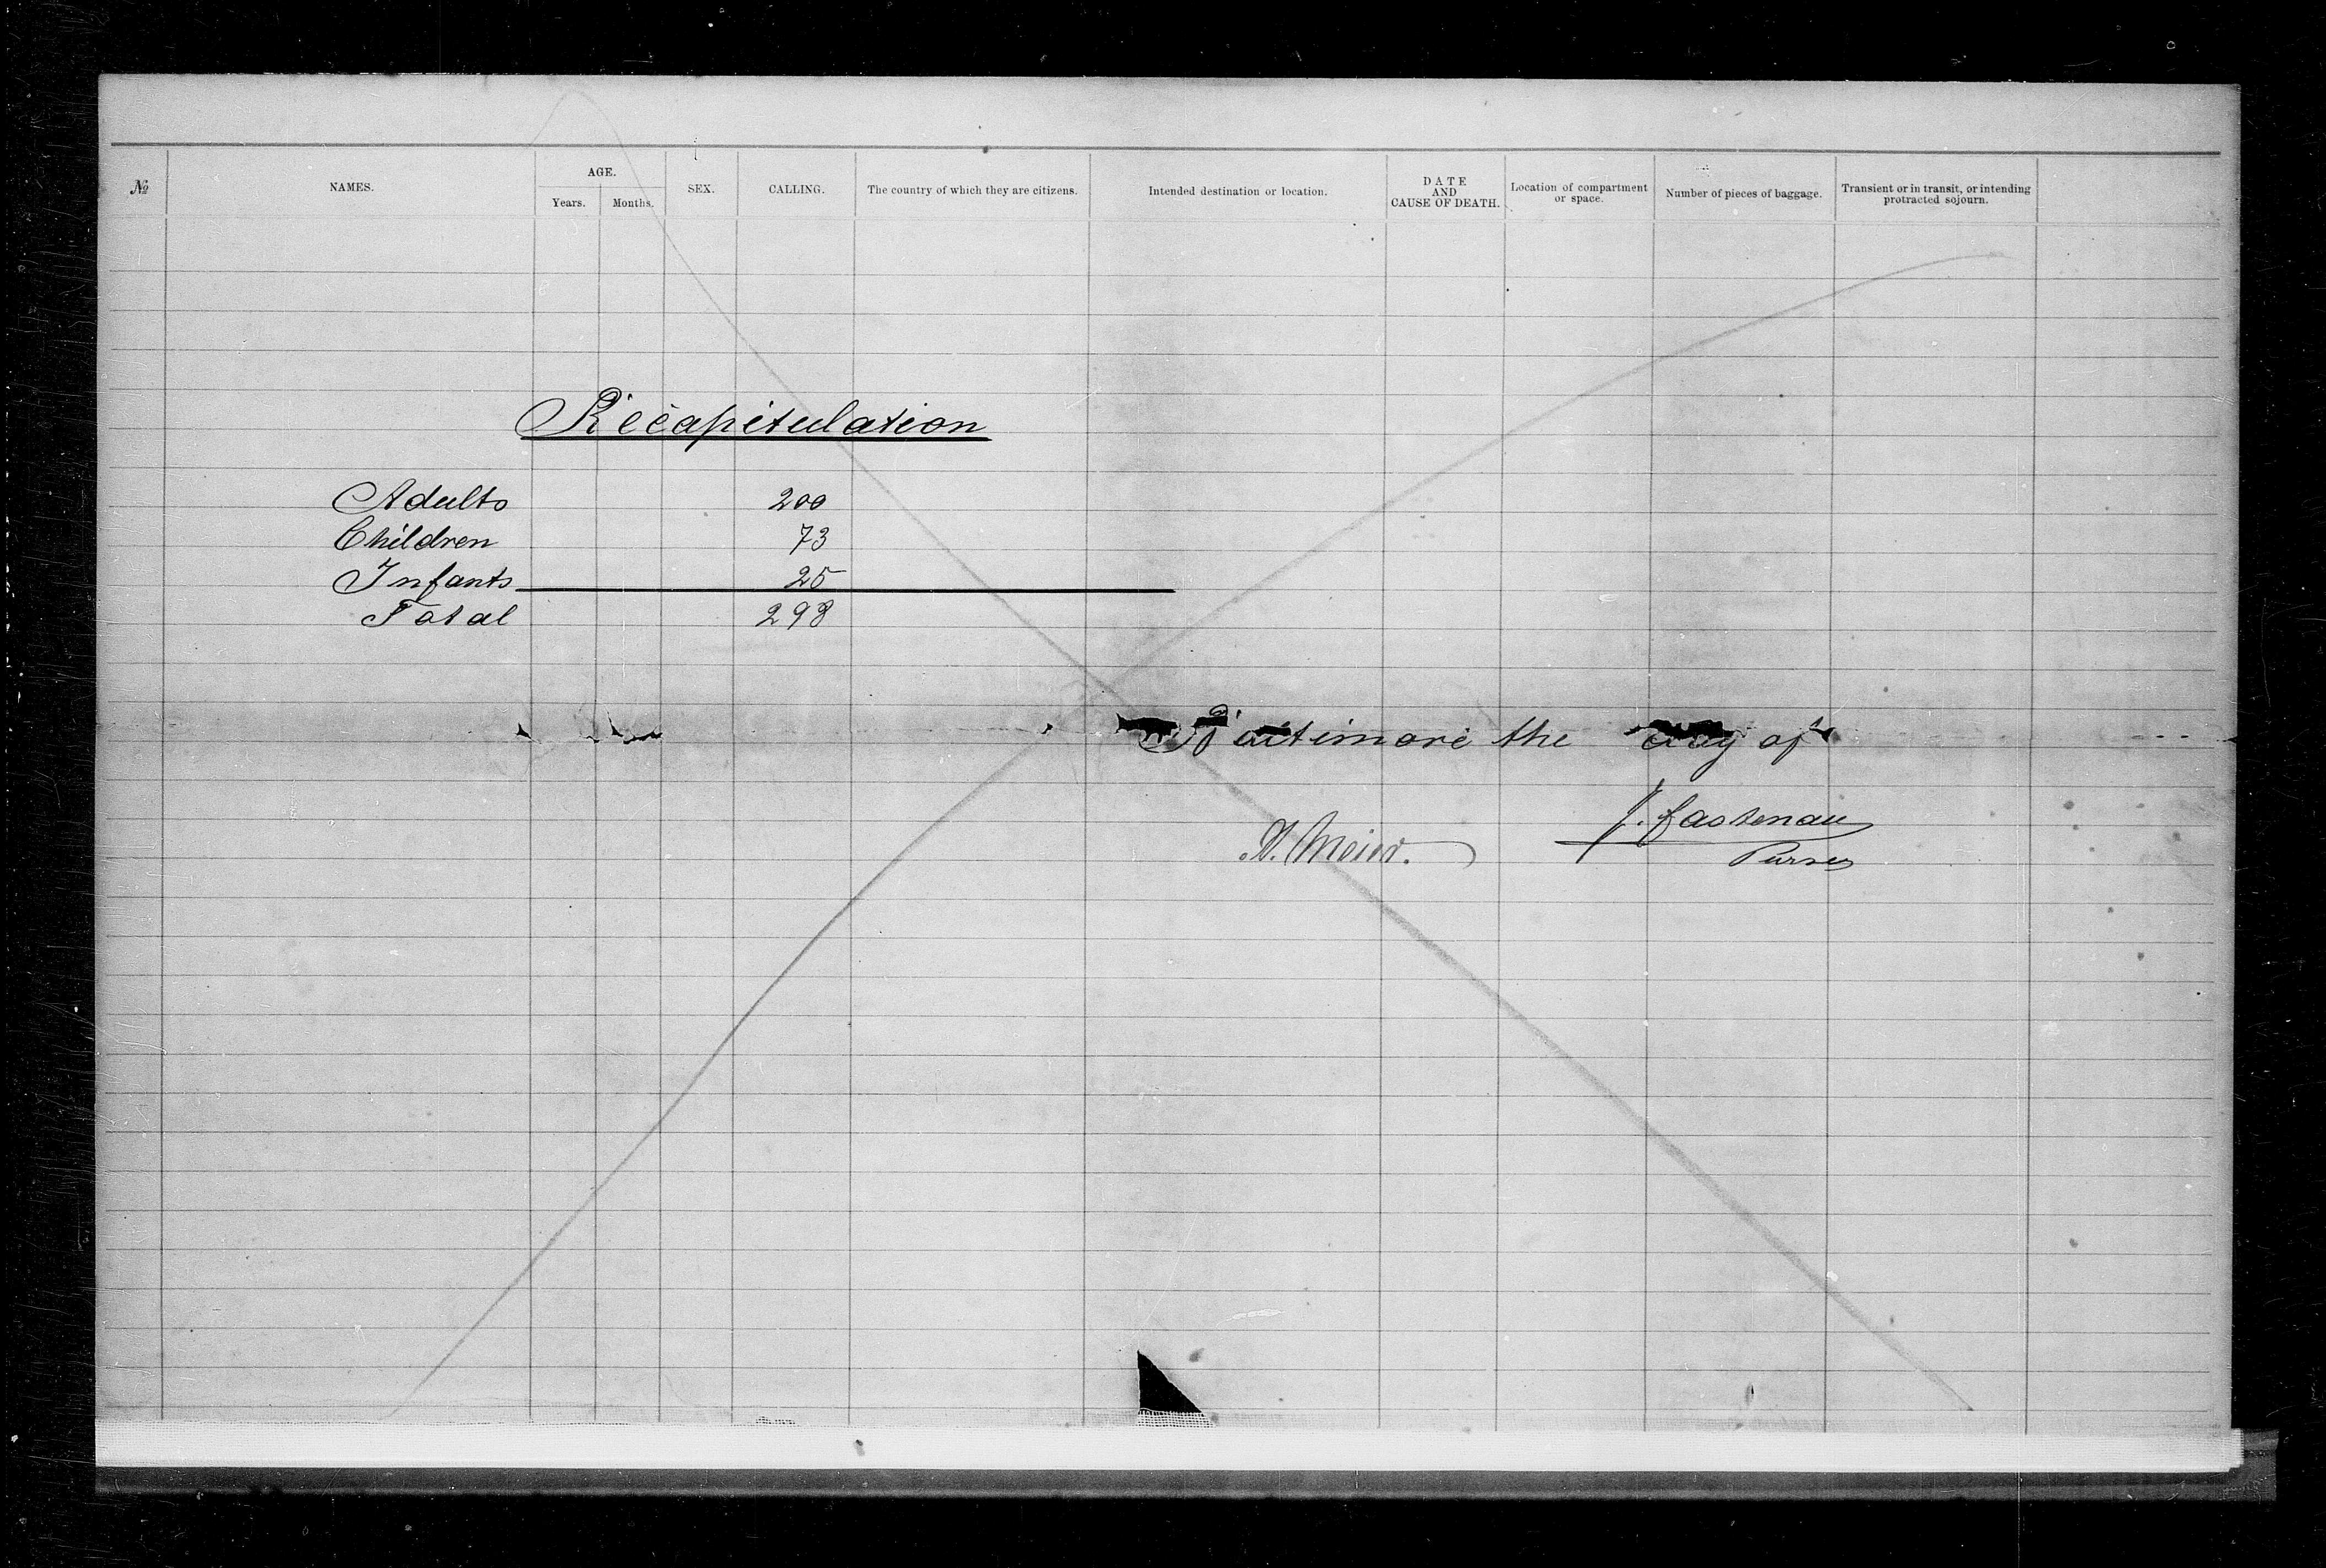 № NAMES. AGE. Years. Months. SEX. CALLING. The country of which they are citizens. Intended destination or location. DATE AND CAUSE OF DEATH. Location of compartment or space. Number of pieces of baggage. Transient or in transit, or intending protracted sojourn.
Recapitulation
Adults 200
Children 73
Infants 25
Total 298
Baltimore the day of
J. Fastenau
Meier.
Purser